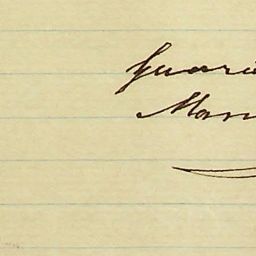 Guari
Man